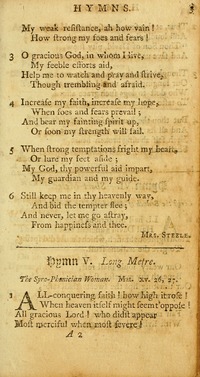 HYMNS.
My weak resistance, ah how vain!
How strong my foes and fears!
3 O gracious God, in whom I live,
My feeble efforts aid,
Help me to watch and pray and strive,
Though trembling and afraid.
4 Increase my faith, increase my hope,
When foes and fears prevail;
And bear my fainting spirit up,
Or soon my strength will fail.
5 When strong temptations fright my heart,
Or lure my feet aside;
My God, thy powerful aid impart,
My guardian and my guide.
6 Still keep me in thy heavenly way,
And bid the tempter flee;
And never, let me go astray,
From happiness and thee.
Mrs. Steele.
Hymn V. Long Metre.
The Syro-Phenician Woman. Mat. xv. 26, 27.
1 ALL-conquering faith! how high it rose!
When heaven itself might seem t'oppose!
All gracious Lord! who didst appear
Most merciful when most severe!
A 2